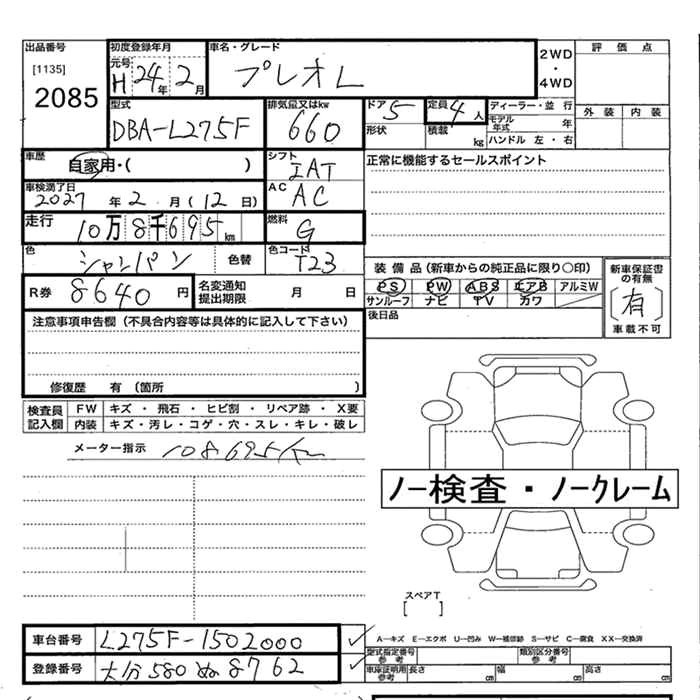 出品番号
[1135]
2085
初度登録年月
元号
H 24年 2月
車名・グレード
プレオL
2WD
・
4WD
評価点
外装 内装
型式
DBA-L275F
排気量又はkw
660
ドア 5
形状
定員 4人
積載 kg
ディーラー・並行
モデル年式 年
ハンドル 左・右
車歴
自家用・( )
シフト
IAT
正常に機能するセールスポイント
車検満了日
2027年 2月 (12日)
AC
AC
走行
10万8千695km
燃料
G
色
シャンパン 色替
色コード
T23
装備品(新車からの純正品に限り○印)
PS PW ABS エアB アルミW
サンルーフ ナビ TV カワ
新車保証書の有無
[有]
車載不可
R券 8640円
名変通知
提出期限 月 日
後日品
注意事項申告欄(不具合内容等は具体的に記入して下さい)
修復歴 有(箇所 )
検査員記入欄
FW キズ・飛石・ヒビ割・リペア跡・X要
内装 キズ・汚レ・コゲ・穴・スレ・キレ・破レ
メーター指示 108695km
ノー検査・ノークレーム
スペアT
[ ]
車台番号 L275F-1502000
登録番号 大分580ぬ8762
A-キズ E-エクボ U-凹み W-補修跡 S-サビ C-腐食 XX-交換済
型式指定番号
参考
類別区分番号
参考
車庫証明用
参考
長さ cm 幅 cm 高さ cm